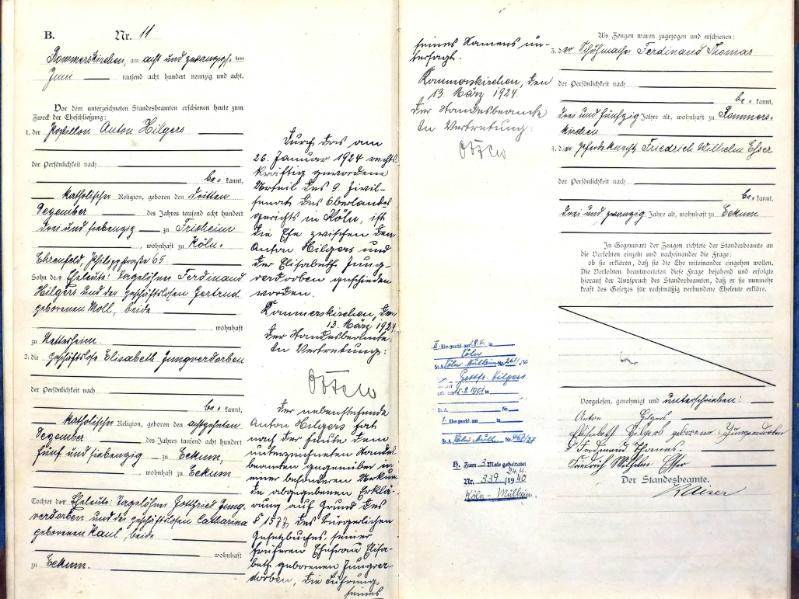 B. Nr. 11
Rommerskirchen, am acht und zwanzigsten
Juni tausend acht hundert neunzig und acht.
Vor dem unterzeichneten Standesbeamten erschienen heute zum
Zweck der Eheschließung:
1. der Anton Hilgers
der Persönlichkeit nach
be= kannt,
katholischer Religion, geboren den dritten
Dezember des Jahres tausend acht hundert
drei und siebenzig zu
, wohnhaft zu Köln=
Ehrenfeld, 65
Sohn der Eheleute: Tagelöhner Ferdinand
Hilgers und der geschäftslosen Gertrud
geborenen Moll, beide
wohnhaft
zu
2. die geschäftslose Elisabeth Jungverdorben
der Persönlichkeit nach
be= kannt,
katholischer Religion, geboren den achtzehnten
Dezember des Jahres tausend acht hundert
fünf und siebenzig zu Eckum,
, wohnhaft zu Eckum
Tochter der Eheleute: Tagelöhner Gottfried Jung=
verdorben und der geschäftslosen Catharina
geborenen Kaul, beide
wohnhaft
zu Eckum.
Durch das am
26. Januar 1924 rechts=
kräftig gewordene
Urteil des 9. Zivil=
senats des Oberlandes=
gerichts in Köln, ist
die Ehe zwischen dem
Anton Hilgers und
der Elisabeth Jung=
verdorben geschieden
worden.
Rommerskirchen, den
13. März 1924.
Der Standesbeamte
In Vertretung:
Der nebenstehende
Anton Hilgers hat
nach der heute dem
unterzeichneten Standes=
beamten gegenüber in
einer besonderen Urkun=
de abgegebenen Erklä=
rung auf Grund des
§ 1577 des Bürgerlichen
Gesetzbuches, seiner
früheren Ehefrau Elisa=
beth geborenen Jungver=
dorben, die Führung
seines
seines Namens un=
tersagt.
Rommerskirchen, den
13. März 1924
Der Standesbeamte
In Vertretung:
Als Zeugen waren zugezogen und erschienen:
3. der Ferdinand Thomas
der Persönlichkeit nach
be= kannt,
drei und fünfzig Jahre alt, wohnhaft zu Rommers=
kirchen
4. der Friedrich Wilhelm Esser
der Persönlichkeit nach
be= kannt,
drei und zwanzig Jahre alt, wohnhaft zu Eckum
In Gegenwart der Zeugen richtete der Standesbeamte an
die Verlobten einzeln und nacheinander die Frage:
ob sie erklären, daß sie die Ehe miteinander eingehen wollen.
Die Verlobten beantworteten diese Frage bejahend und erfolgte
hierauf der Ausspruch des Standesbeamten, daß er sie nunmehr
kraft des Gesetzes für rechtmäßig verbundene Eheleute erkläre.
Köln
Vorgelesen, genehmigt und unterschrieben:
Anton Hilgers
Elisabeth Hilgers geborene Jungverdorben
Ferdinand Thomas
Friedrich Wilhelm Esser
Der Standesbeamte.
Nr. 339/1940
Köln-Mülheim